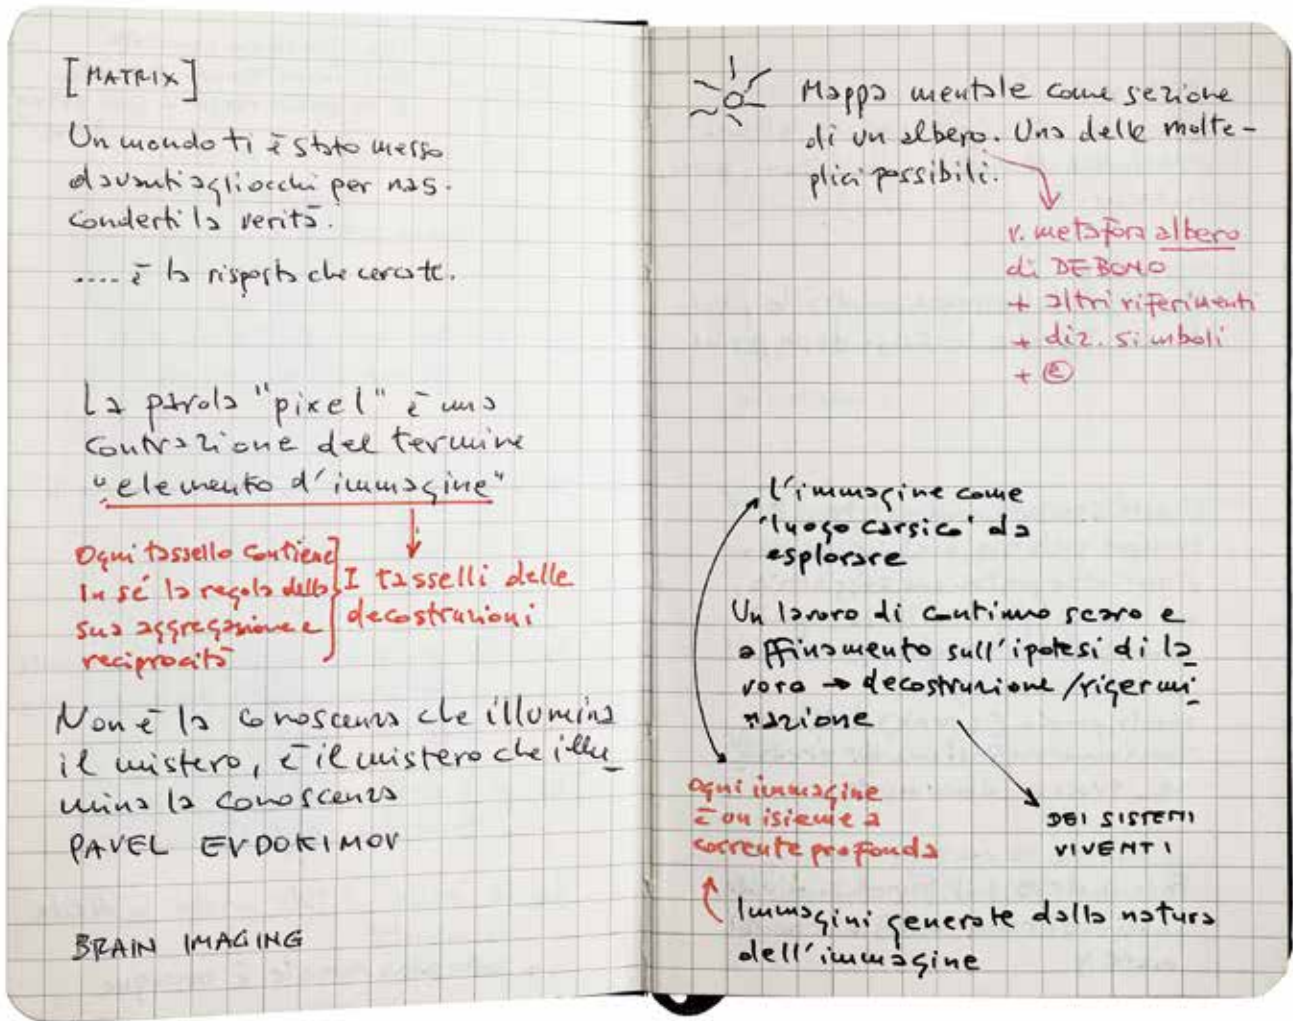 [MATRIX]
Un mondo ti è stato messo
davanti agli occhi per nas-
conderti la verità.
.... è la risposta che cercate.
La parola "pixel" è una
contrazione del termine
"elemento d'immagine"
Ogni tassello contiene
in sé la regola della
sua aggregazione e
reciprocità
I tasselli delle
decostruzioni
Non è la conoscenza che illumina
il mistero, è il mistero che illu_
mina la conoscenza
PAVEL EVDOKIMOV
BRAIN IMAGING
Mappa mentale come sezione
di un albero. Una delle molte-
plici possibili.
v. metafora albero
di DE BONO
+ altri riferimenti
+ diz. simboli
+ e
l'immagine come
'luogo carsico' da
esplorare
Un lavoro di continuo scavo e
affinamento sull'ipotesi di la_
voro → decostruzione/rigermi_
nazione
DEI SISTEMI
VIVENTI
ogni immagine
è un insieme a
corrente profonda
Immagini generate dalla natura
dell'immagine